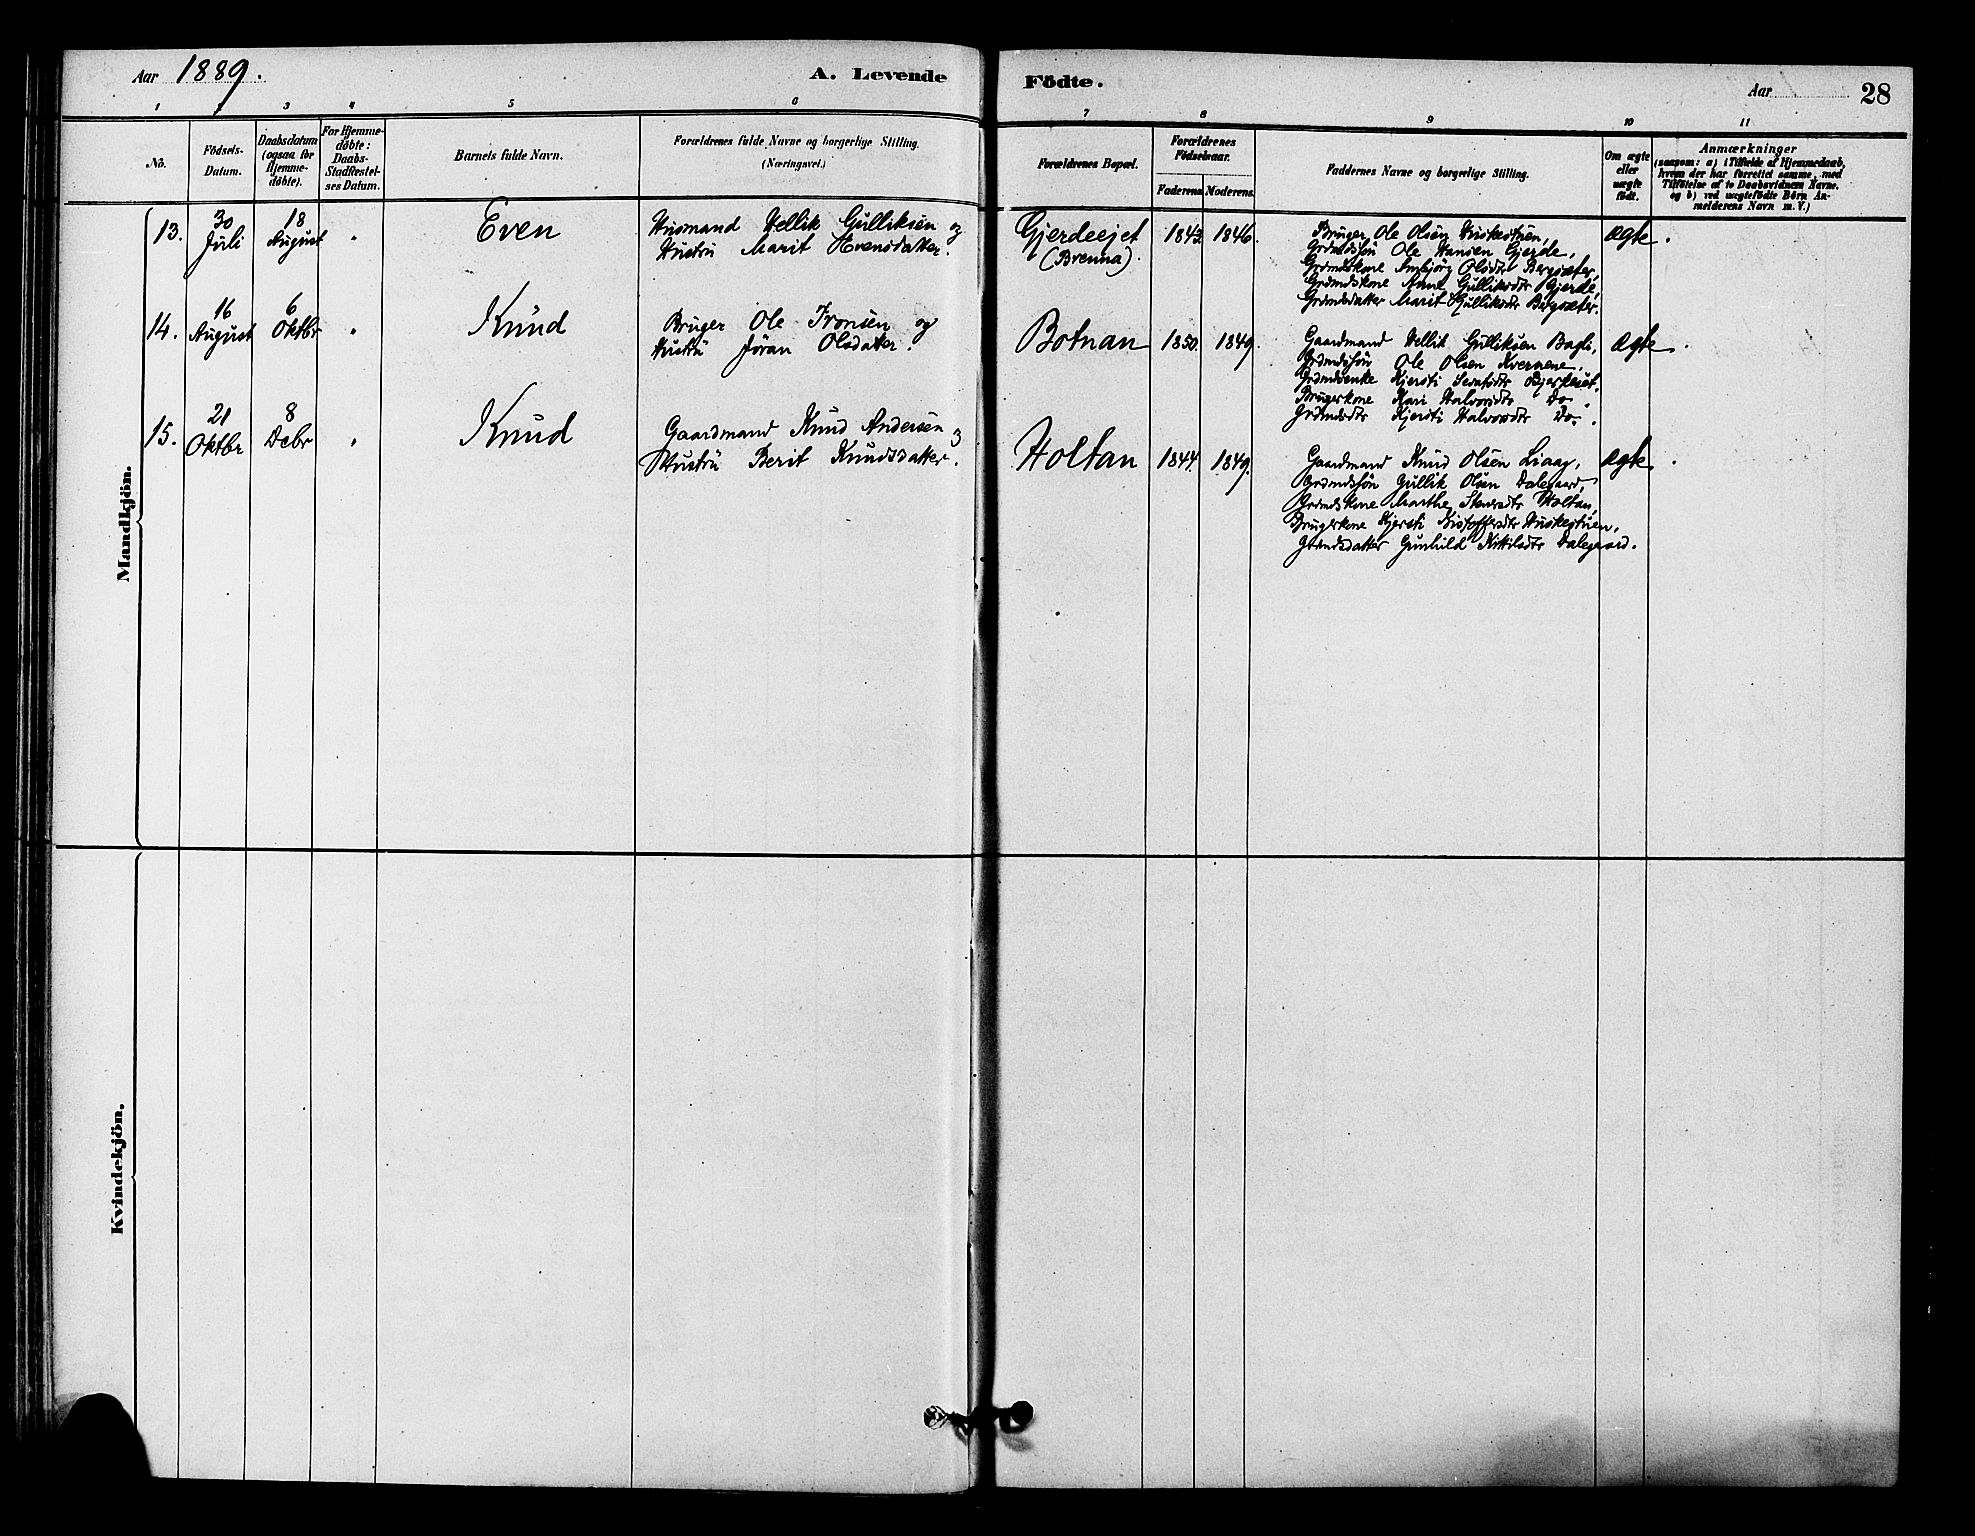 Aar 1889.
A. Levende
Födte.
Aar
28
1 2 3 4 5 6 7 8 9 10 11
No.
Födsels-
Datum.
Daabsdatum
(ogsaa for
Hjemme-
döbte).
For Hjemme-
döbte:
Daabs-
Stadfæstel-
ses Datum.
Barnets fulde Navn.
Forældrenes fulde Navne og borgerlige Stilling.
(Næringsvei.)
Forældrenes Bopæl.
Forældrenes
Födselsaar.
Faderens. Moderens.
Faddernes Navne og borgerlige Stilling.
Om ægte
eller
uægte
födt.
Anmærkninger
(saasom: a) i Tilfælde af Hjemmedaab,
hvem der har forrettet samme, med
Tilföielse af to Daabsvidners Navne,
og b) ved uægtefödte Börn An-
melderens Navn m. V.)
Mandkjön.
13.
30
Juli
18
August
"
Even
Husmand Hellik Gulliksen og
Hustru Marit Evensdatter.
Gjerdeejet
(Brenna).
1843. 1846.
Bruger Ole Olsen Huskestuen,
Grdmdssön Ole Hansen Gjerde,
Grdmdskone Anbjörg Olsdtr Bergsæter,
Grdmdskone Anne Gulliksdtr Gjerde,
Grdmdsdatter Marit Gulliksdtr Bergsæter.
ægte.
14.
16
August
6
Oktbr
"
Knud
Bruger Ole Ivensen og
Hustru Jöran Olsdatter.
Botnan
1850. 1849.
Gaardmand Hellik Gulliksen Bagli,
Grdmdssön Ole Olsen Kvernene,
Grdmdsenke Kjersti
Brugerkone Kari Halvorsdtr Do.
Grdmdsdtr Kjersti Halvorsdtr Do.
ægte.
15.
21
Oktbr
8
Debr
"
Knud
Gaardmand Knud Andersen og
Hustru Berit Knudsdatter.
Holtan
1844. 1849.
Gaardmand Knud Olsen Liaag,
Grdmdssön Gullik Olsen Dalegaard,
Grdmdskone Marthe Steversdtr Holtan,
Brugerkone Kjersti Kistoffersdtr Huskestuen,
Grdmdsdatter Gunhild Kittilsdtr Dalegaard.
ægte.
Kvindekjön.